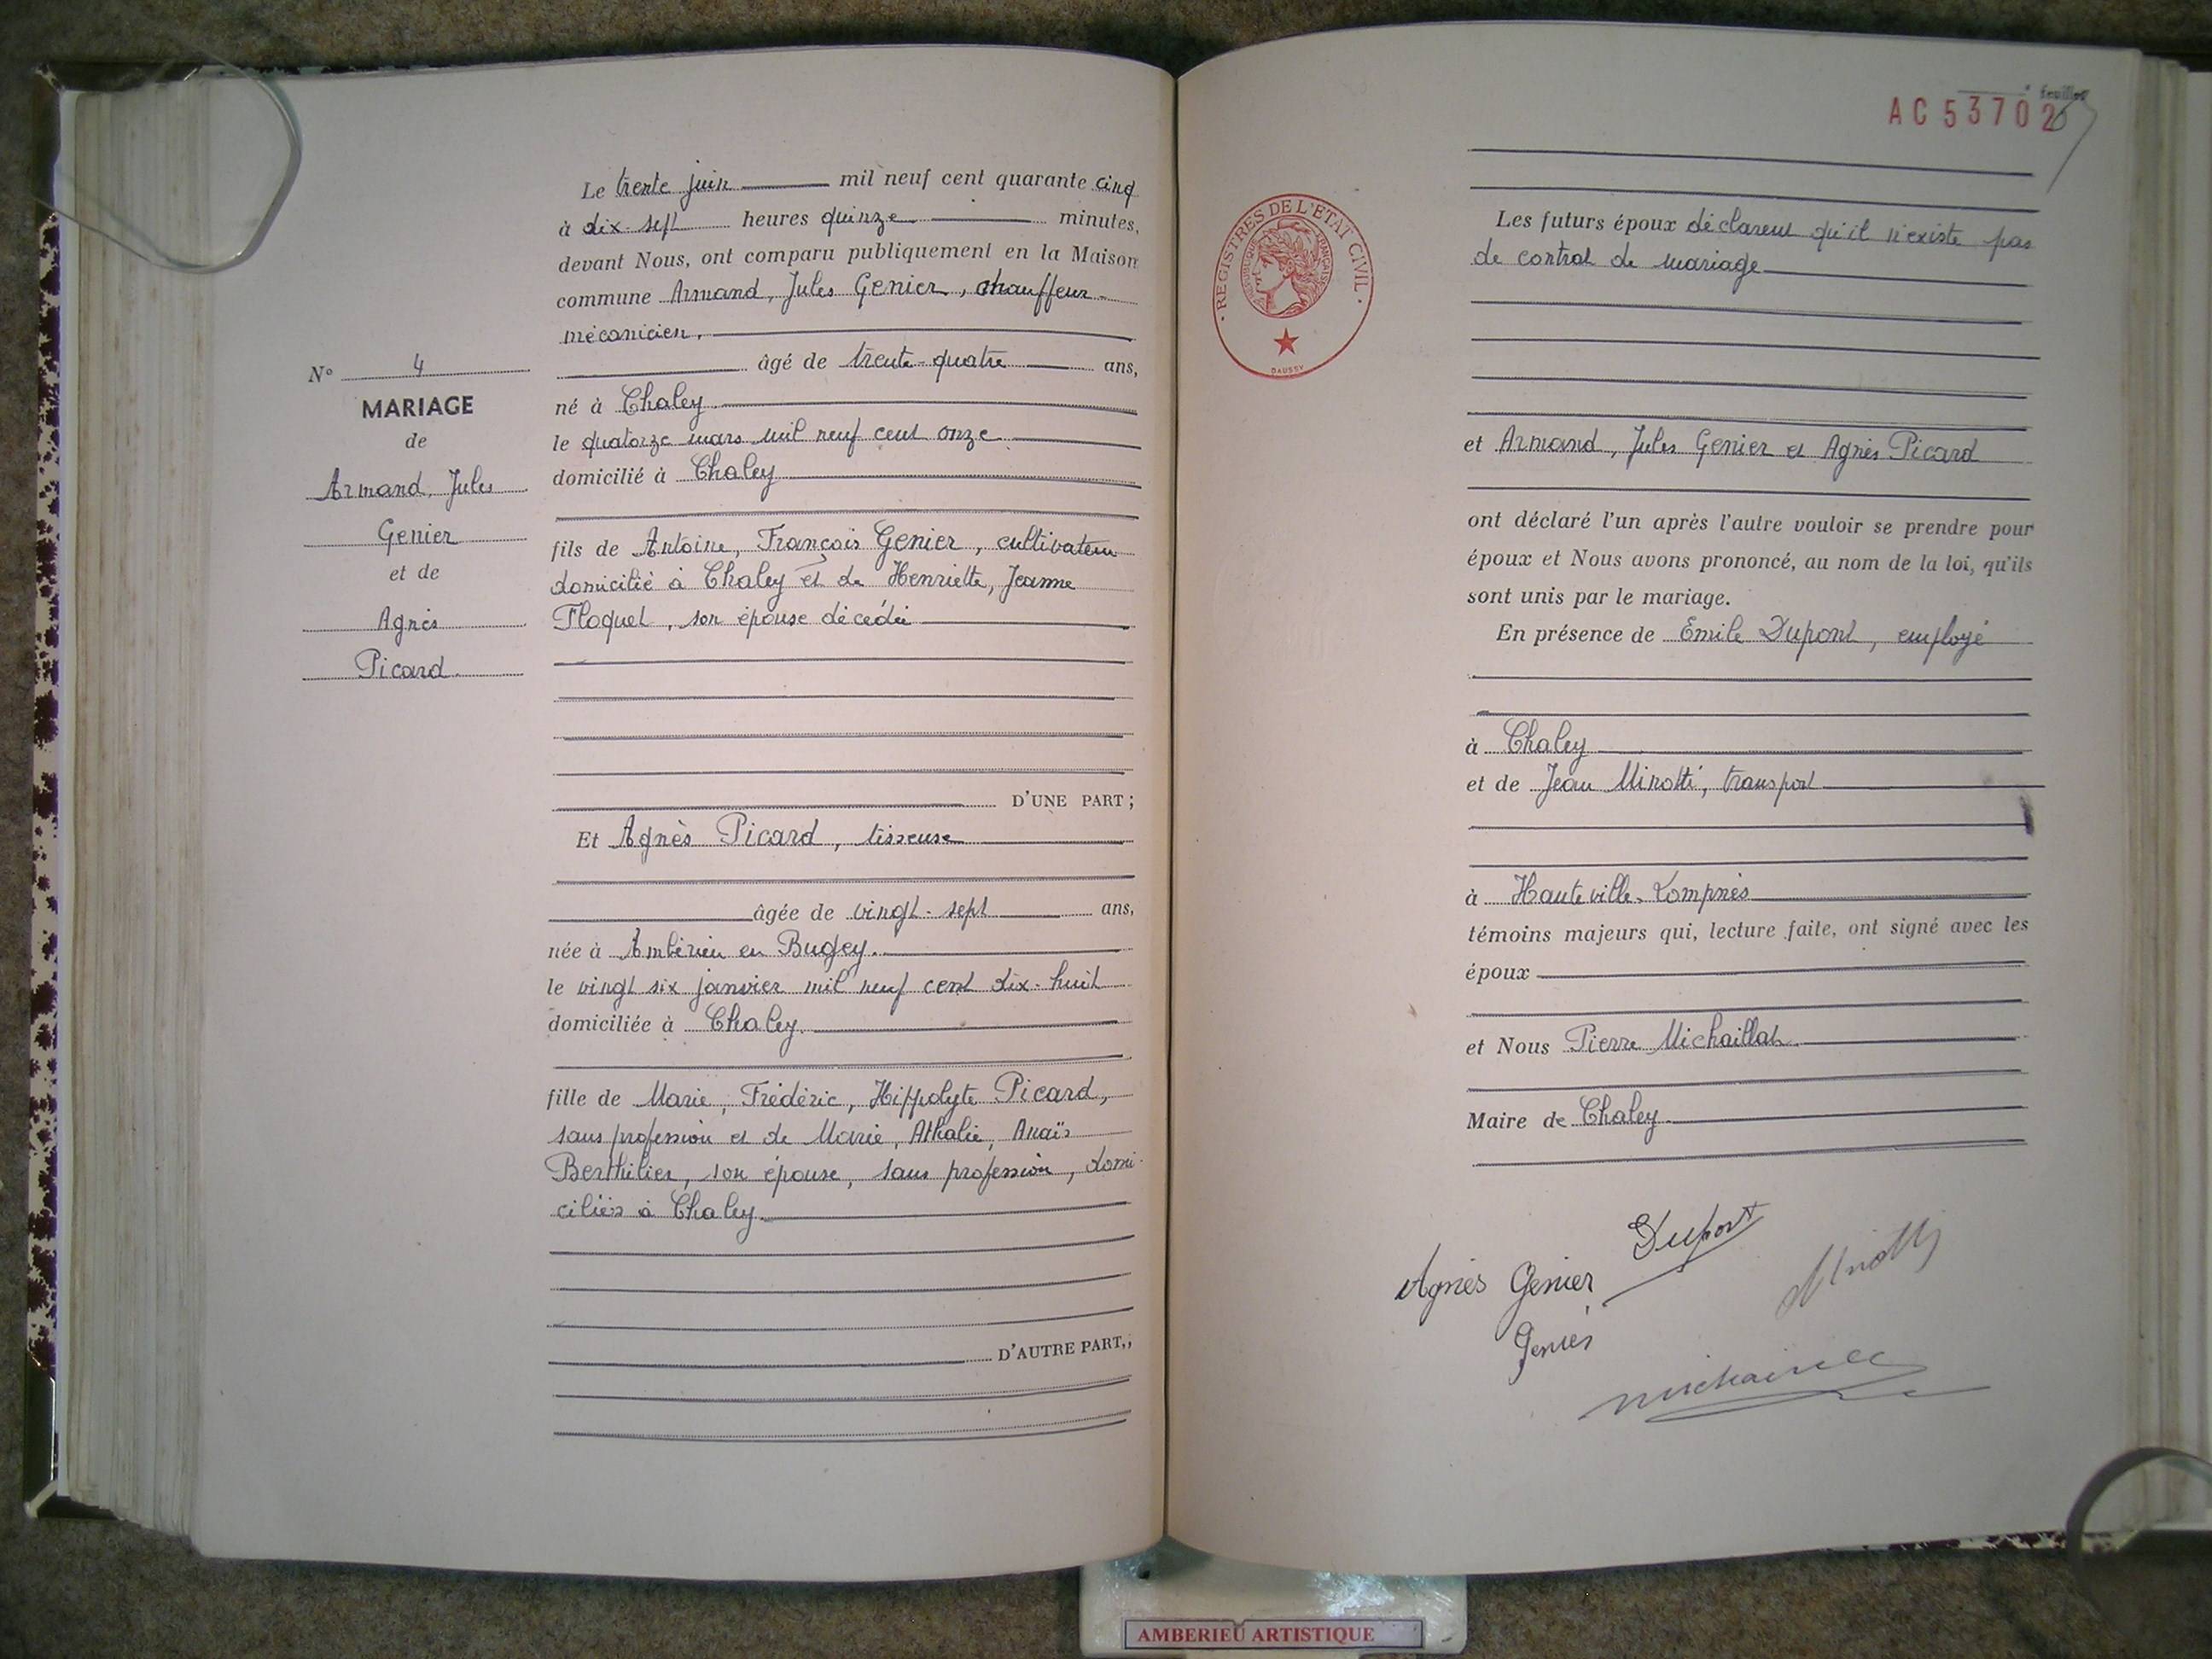 Le trente juin mil neuf cent quarante cinq
à dix-sept heures quinze minutes,
devant Nous, ont comparu publiquement en la Maison
commune Armand, Jules Genier, chauffeur
mécanicien,
âgé de trente-quatre ans,
né à Chaley
le quatorze mars mil neuf cent onze
domicilié à Chaley
fils de Antoine, François Genier, cultivateur
domicilié à Chaley et de Henriette, Jeanne
Floquet, son épouse décédée
D'UNE PART ;
Et Agnès Picard, tisseuse
âgée de vingt-sept ans,
née à Ambérieu en Bugey.
le vingt six janvier mil neuf cent dix-huit
domiciliée à Chaley.
fille de Marie, Frédéric, Hippolyte Picard,
sans profession et de Marie, Athalie, Anaïs
Berthilier, son épouse, sans profession, domi-
ciliés à Chaley.
D'AUTRE PART,,
N° 4
MARIAGE
de
Armand, Jules
Genier
et de
Agnès
Picard.
feuillet
AC 53702
REGISTRES DE L'ETAT CIVIL
REPUBLIQUE FRANÇAISE
DAUSSY
Les futurs époux déclarent qu'il n'existe pas
de contrat de mariage
et Armand, Jules Genier et Agnès Picard
ont déclaré l'un après l'autre vouloir se prendre pour
époux et Nous avons prononcé, au nom de la loi, qu'ils
sont unis par le mariage.
En présence de Emile Dupont, employé
à Chaley
et de Jean Minotti, transport
à Hauteville-Lompnès
témoins majeurs qui, lecture faite, ont signé avec les
époux
et Nous Pierre Michaillat.
Maire de Chaley.
Dupont
Agnès Genier
Genier
AMBERIEU ARTISTIQUE